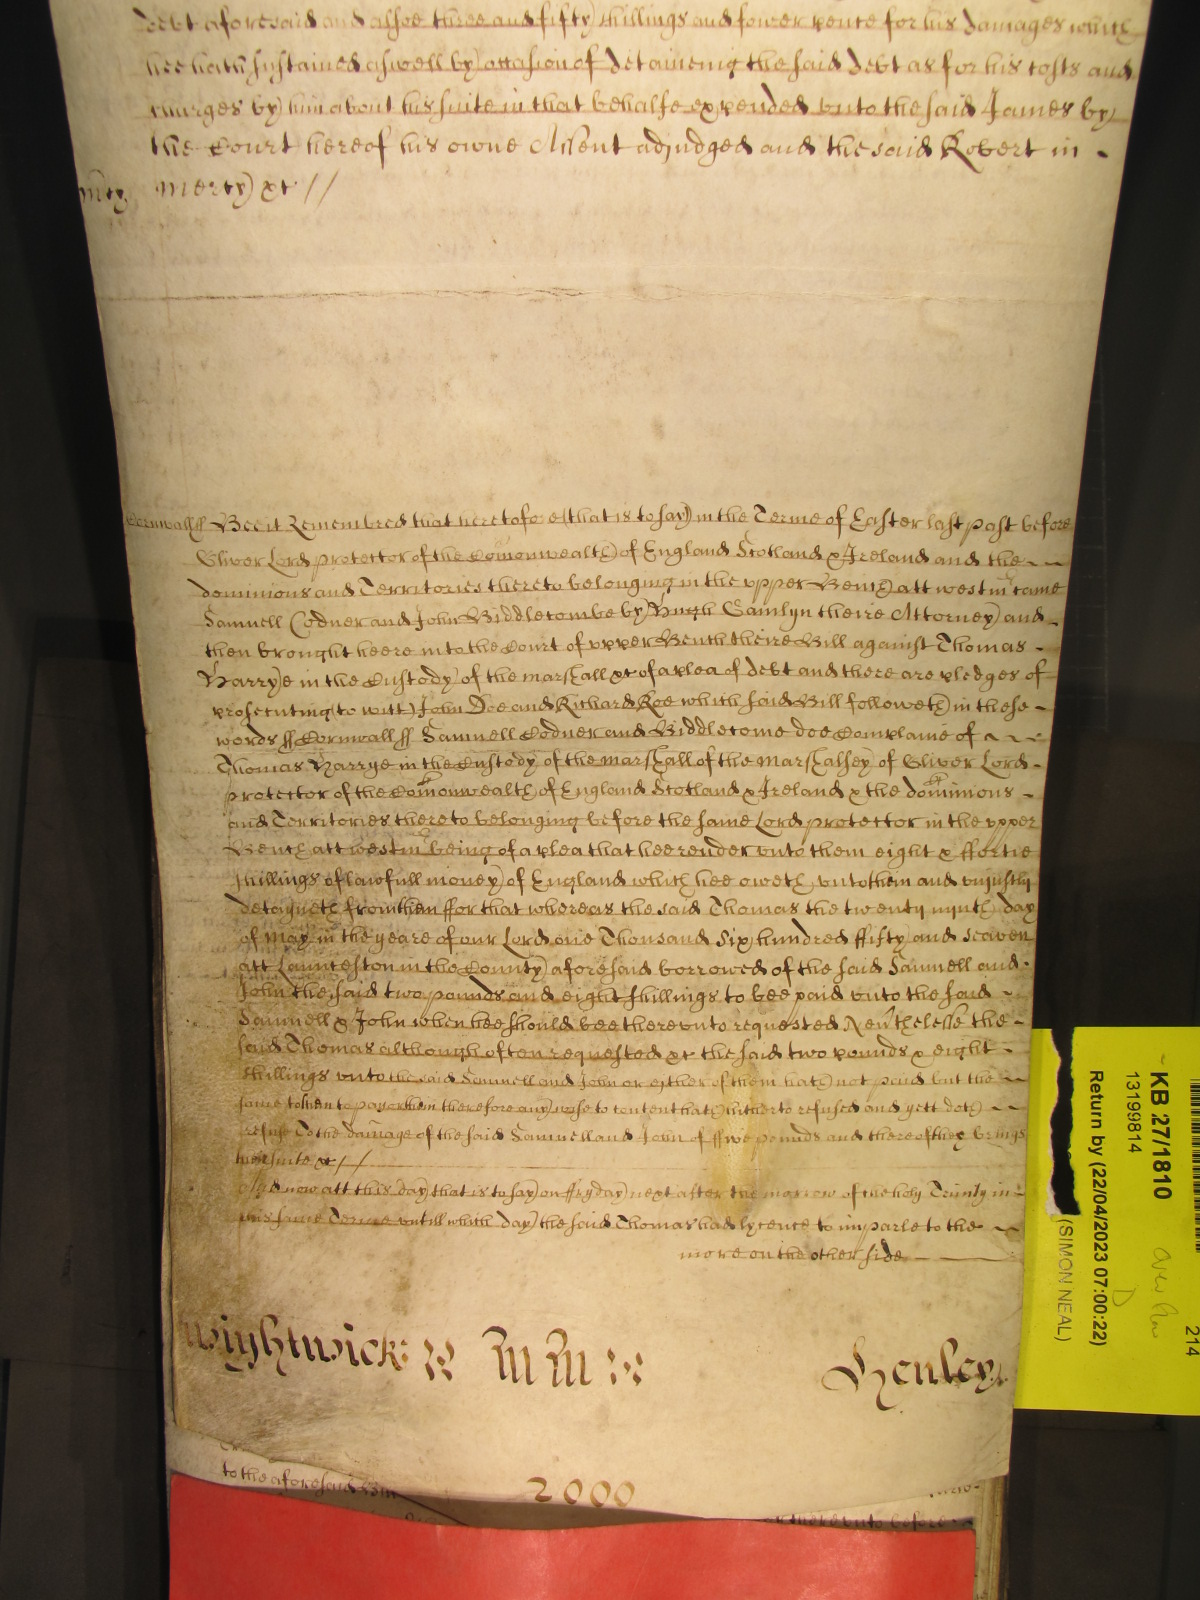 debt aforesaid and alsoe three and fifty shillings and fower pence for his damages which
hee hath sustained aswell by occasion of detaineing the said debt as for his costs and
charges by him about his suite in that behalfe expended vnto the said James by
the Court hereof his owne Assent adjudged and the said Robert in -
mercy &c //
Cornwall ss Bee it Remembred that heretofore (that is to say) in the Terme of Easter last past before
Oliver Lord protector of the Comonwealth of England Scotland & Ireland and the
dominions and Territories thereto belonging in the vpper Bench att westm came
Samuell Codner and John Biddlecombe by Hugh Gamlyn theire Attorney and
then brought heere into the Court of vpper Bench theire Bill against Thomas -
Harrye in the Custody of the marshall &c of a plea of debt and there are pledges of
prosecuting (to witt) John Doe and Richard Roe which said Bill followeth in these -
words ss Cornwall ss Samuell Codner and Biddlecome doe Complaine of
Thomas Harrye in the Custody of the marshall of the marshalsey of Oliver Lord -
protector of the Comonwealth of England Scotland & Ireland & the dominions -
and Territories thereto belonging before the same Lord protector in the vpper
Bench att westm being of a plea that hee render vnto them eight & ffortie
shillings of lawfull money of England which hee oweth vnto them and vniustly
detayneth from them ffor that whereas the said Thomas the twenty nynth day
of May in the yeare of our Lord one Thousand Six hundred ffifty and seaven
att Launceston in the County aforesaid borrowed of the said Samuell and -
John the said two pounds and eight shillings to bee paid vnto the said
Samuell & John when hee should bee therevnto requested Nevthelesse the -
said Thomas although often requested &c the said two pounds & eight
shillings vnto the said Samuell and John or eyther of them hath not paid but the
same to them to pay or them therefore any wise to content hath hitherto refused and yett doth
refuse To the damage of the said Samuell and John of ffive pounds and thereof they bring
their suite &c //
And now att this day that is to say on ffryday next after the morrow of the holy Trinity in
this same Terme vntill which day the said Thomas had lycence to imparle to the
more on the other side
Wightwick
Henley
2000
to the aforesaid
therevnto before
KB 27/1810
13199814
Return by (22/04/2023 07:00:22)
(SIMON NEAL)
D
214